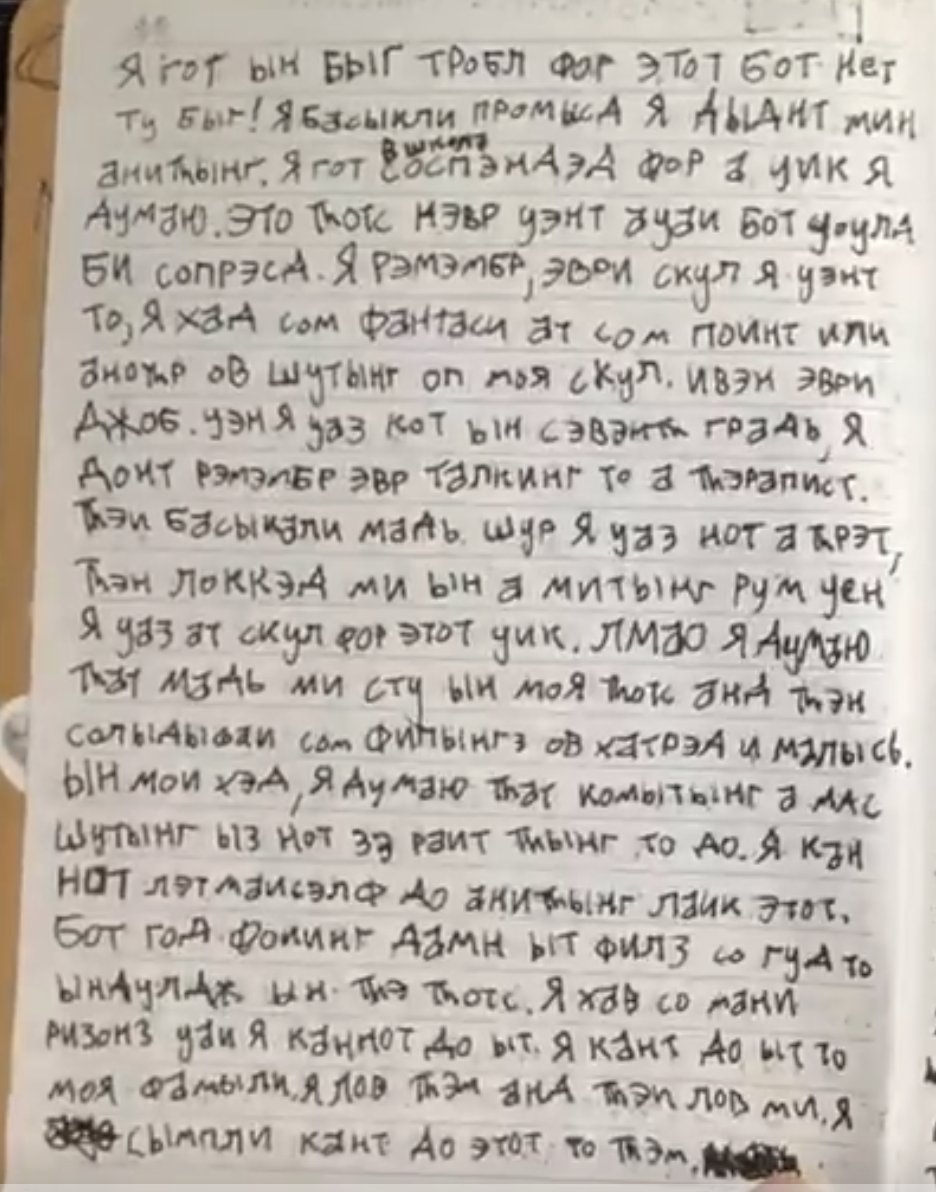 Я ГОТ ЫН БЫГ ТРОБЛ ФОР ЭТОТ БОТ НЕТ
ТУ БЫГ! Я БАСЫКЛИ ПРОМЫСД Я ДЫДНТ МИН
АНИТҺЫНГ. Я ГОТ В ШКОЛА СОСПЭНДЭД ФОР А УИК Я
ДУМАЮ. ЭТО ТҺОТС НЭВР УЭНТ АУАИ БОТ УОУЛД
БИ СОПРЭСД. Я РЭМЭМБР, ЭВРИ СКУЛ Я УЭНТ
ТО, Я ХАД СОМ ФАНТАСИ АТ СОМ ПОИНТ ИЛИ
АНОТҺР ОВ ШУТЫНГ ОП МОЯ СКУЛ. ИВЭН ЭВРИ
ДЖОБ. УЭН Я УАЗ КОТ ЫН СЭВЭНТҺ ГРАДЬ, Я
ДОНТ РЭМЭМБР ЭВР ТАЛКИНГ ТО А ТҺЭРАПИСТ.
ТҺЭИ БАСЫКАЛИ МАДЬ ШУР Я УАЗ НОТ А ТҺРЭТ,
ТҺЭН ЛОККЭД МИ ЫН А МИТЫНГ РУМ УЕН
Я УАЗ АТ СКУЛ ФОР ЭТОТ УИК. ЛМАО Я ДУМАЮ
ТҺАТ МАДЬ МИ СТУ ЫН МОЯ ТҺОТС АНД ТҺЭН
СОЛЫДЫФАИ СОМ ФИЛЫНГЗ ОВ ХАТРЭД И МАЛЫСЬ.
ЫН МОИ ХЭД, Я ДУМАЮ ТҺАТ КОМЫТЫНГ А МАС
ШУТЫНГ ЫЗ НОТ ЗЭ РАИТ ТҺЫНГ ТО ДО. Я КАН
НОТ ЛЭТ МАИСЭЛФ ДО АНИТҺЫНГ ЛАИК ЭТОТ.
БОТ ГОД ДАМН ЫТ ФИЛЗ СО ГУД ТО
ЫНДУЛДЖ ЫН ТҺЭ ТҺОТС. Я ХАВ СО МАНИ
РИЗОНЗ УАИ Я КАННОТ ДО ЫТ. Я КАНТ ДО ЫТ ТО
МОЯ ФАМЫЛИ. Я ЛОВ ТҺЭМ АНД ТҺЭИ ЛОВ МИ. Я
СЫМПЛИ КАНТ ДО ЭТОТ ТО ТҺЭМ.